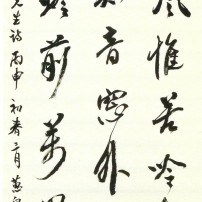 風惟苦吟
知音窗外
燈前萬里
先生詩丙申初春二月燕